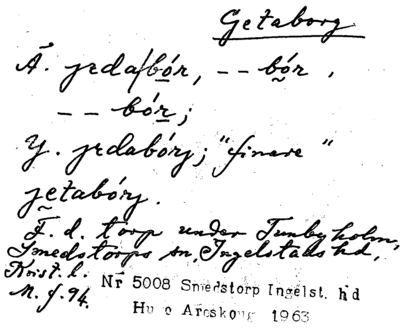 Getaborg
Ä. jɛda/bór, -- bór,
-- bór;
Y. jɛdabórj; "finare"
jetabórj.
F. d. torp under Tunbyholm,
Smedstorps sn, Ingelstads hd,
Krist. l.
M. f. 94.
Nr 5008 Smedstorp Ingelst. hd
Hugo Areskoug 1963